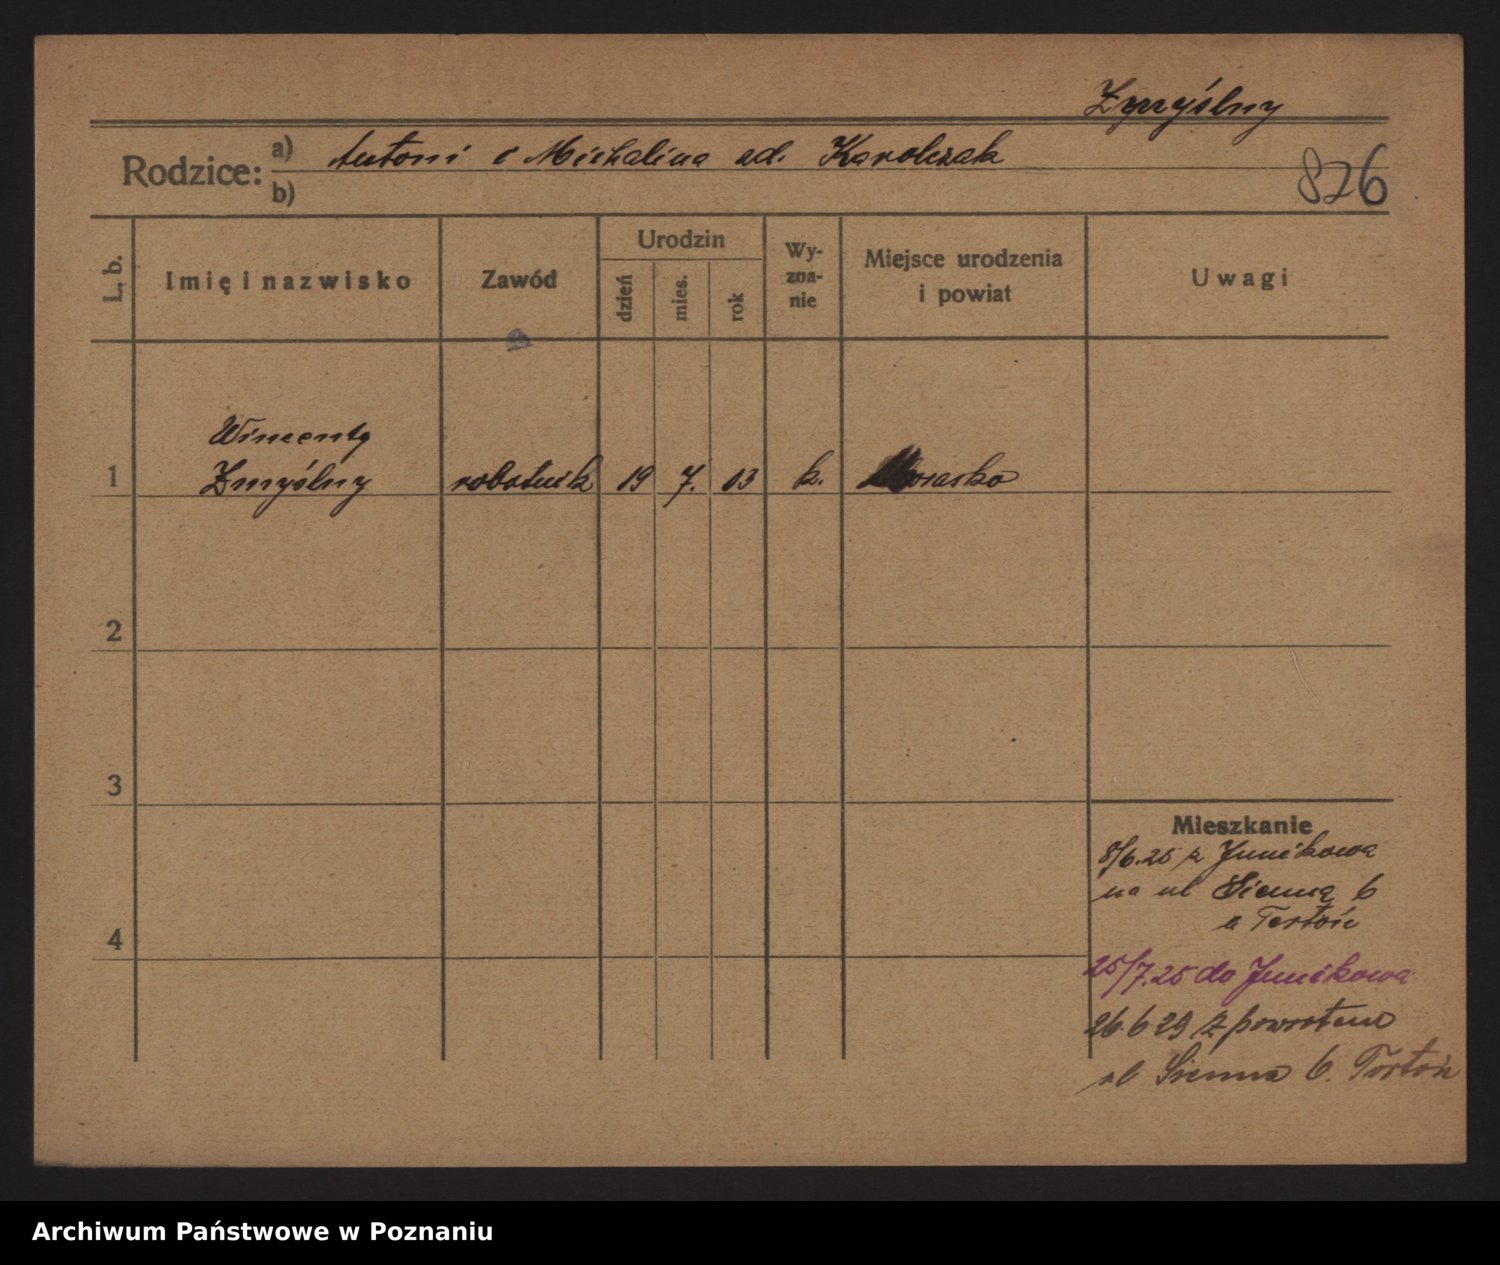 Zmyślny
Rodzice: a) Antoni i Michalina zd. Karolczak
b)
826
L. b. Imię i nazwisko Zawód Urodzin dzień mies. rok Wy-zna-nie Miejsce urodzenia i powiat Uwagi
Wincenty
1 Zmyślny robotnik 19 7. 03 k. Morasko
2
3
Mieszkanie
8/6.25 z Junikowa
na ul Sienną 6
4
25/7.25 do Junikowa
26.6 29 z powrotem
ul Sienna 6.
Archiwum Państwowe w Poznaniu